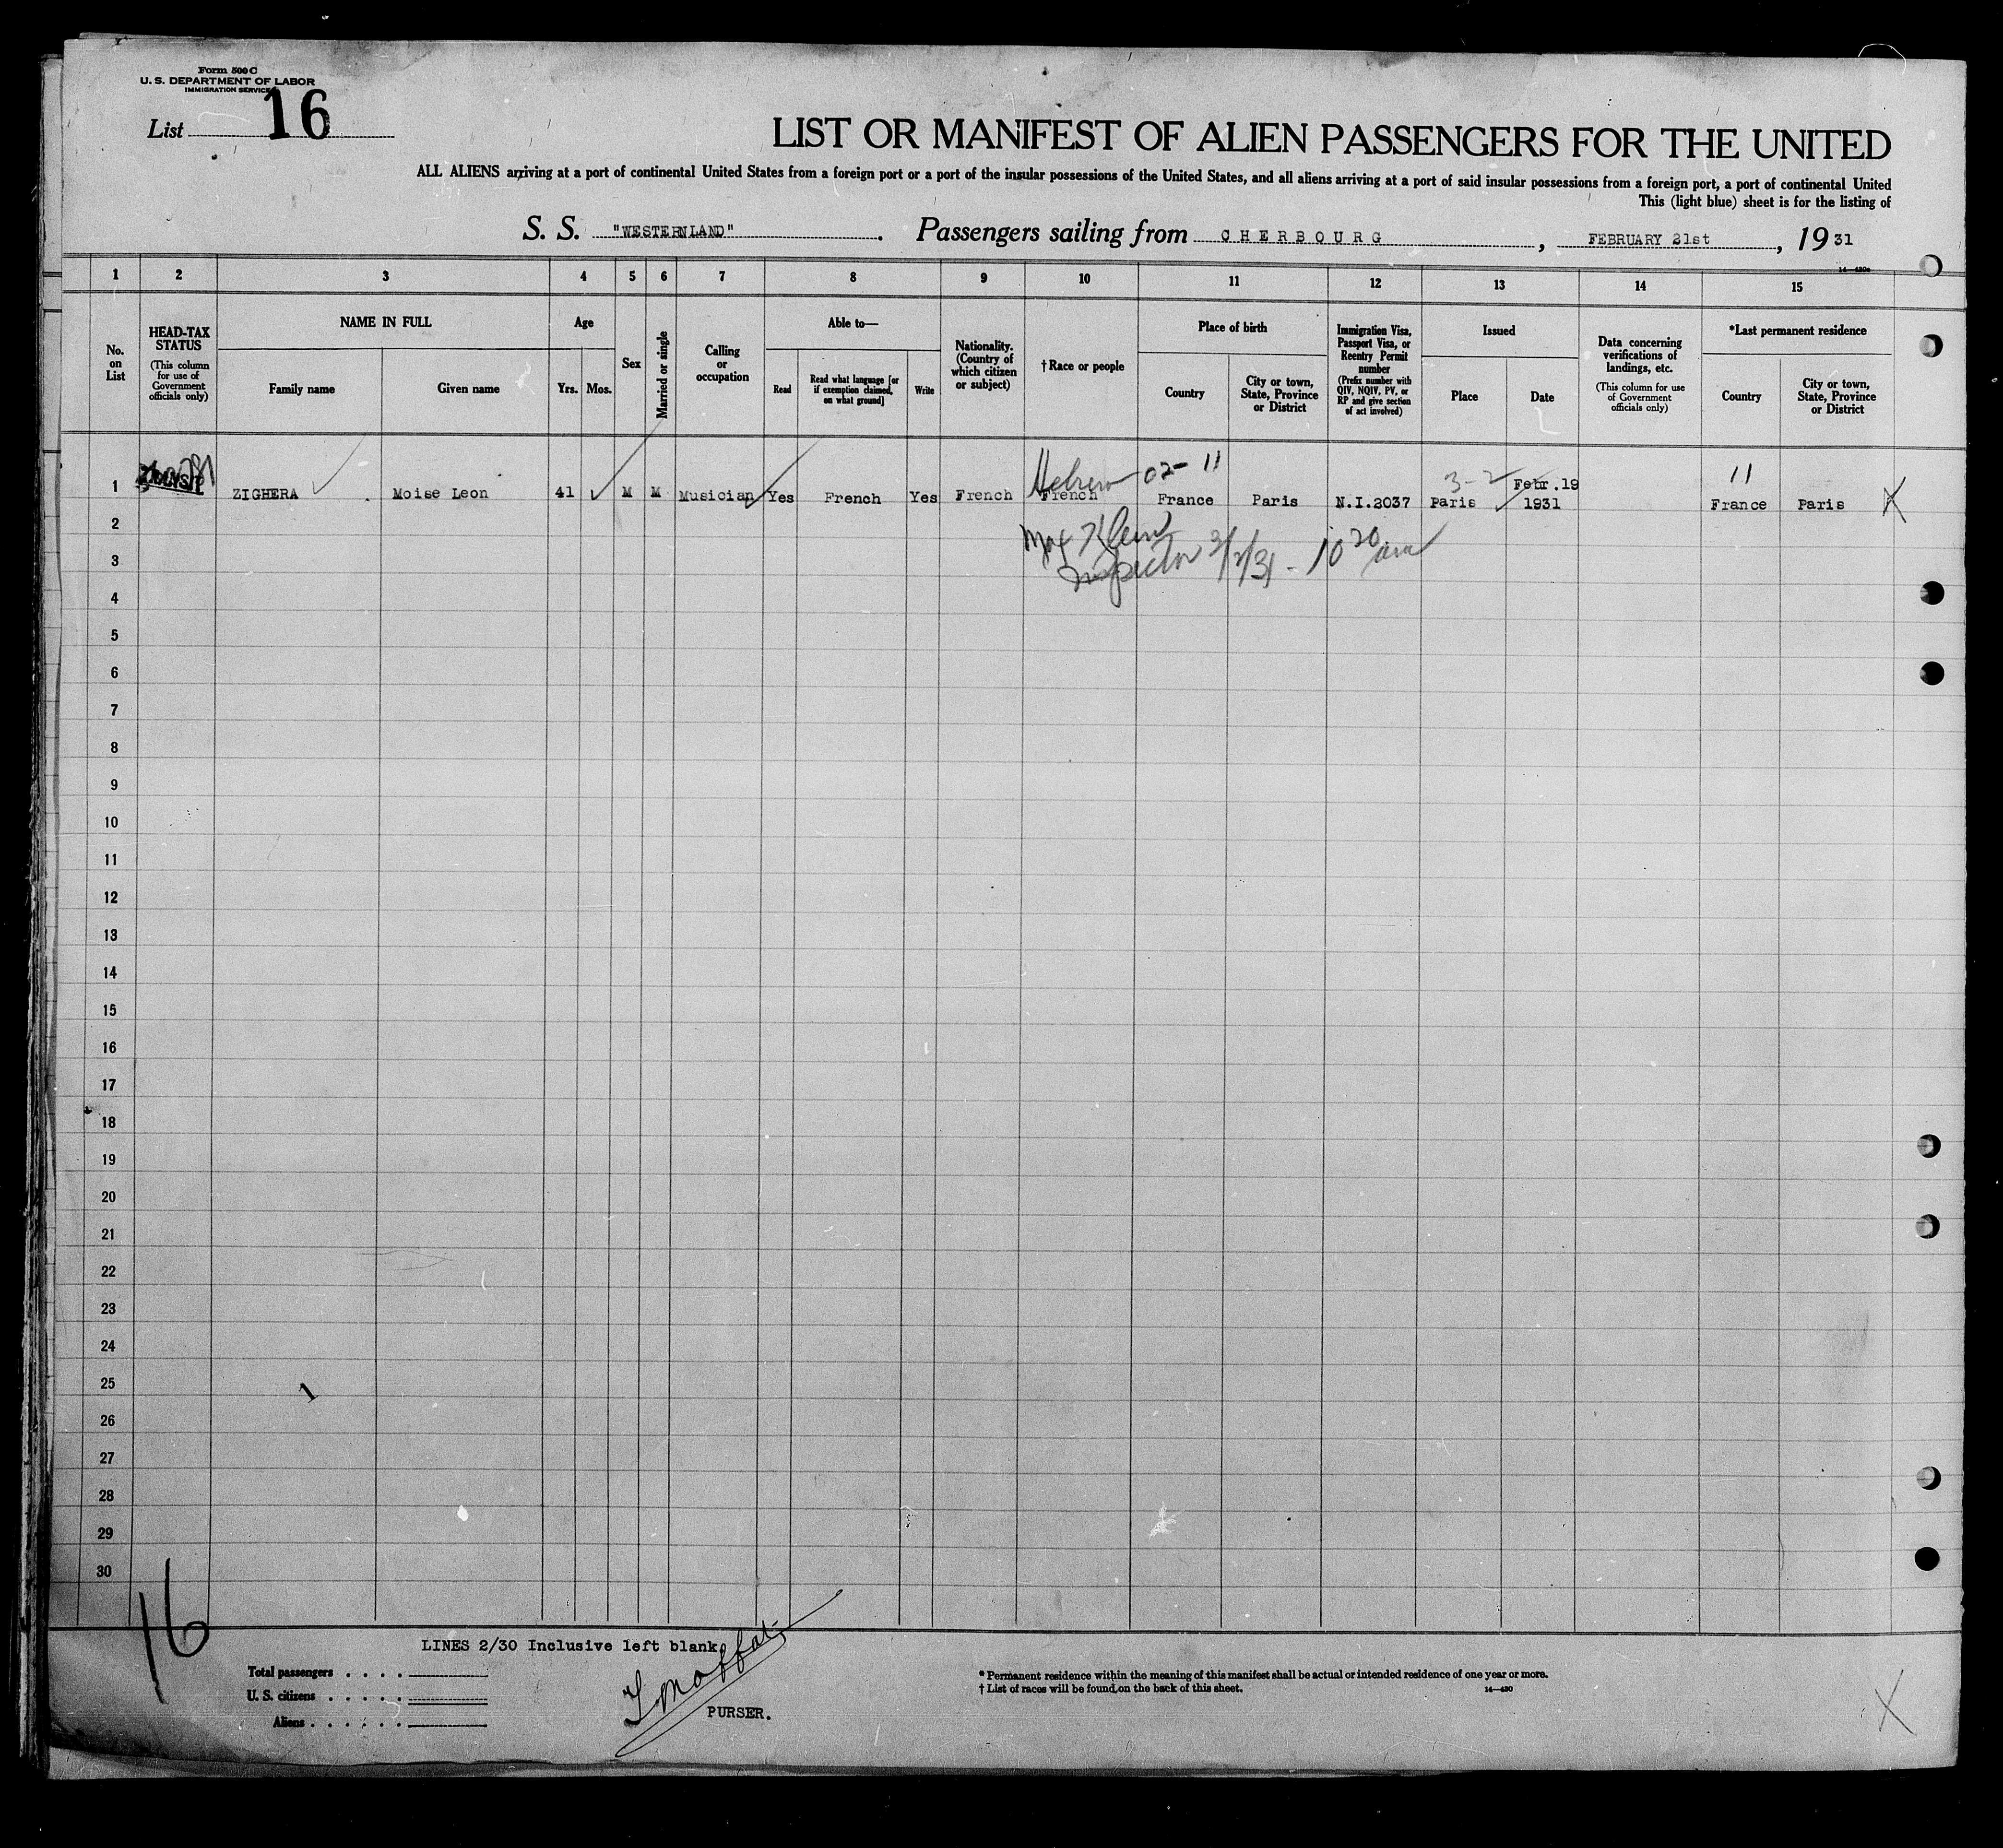 Form 500 C
U. S. DEPARTMENT OF LABOR
IMMIGRATION SERVICE
List 16
LIST OR MANIFEST OF ALIEN PASSENGERS FOR THE UNITED
ALL ALIENS arriving at a port of continental United States from a foreign port or a port of the insular possessions of the United States, and all aliens arriving at a port of said insular possessions from a foreign port, a port of continental United
This (light blue) sheet is for the listing of
S. S. "WESTERNLAND". Passengers sailing from CHERBOURG, FEBRUARY 21st, 1931
14—430a
1 2 3 4 5 6 7 8 9 10 11 12 13 14 15
No. on List
HEAD-TAX STATUS
(This column for use of Government officials only)
NAME IN FULL
Family name Given name
Age
Yrs. Mos.
Sex
Married or single
Calling or occupation
Able to—
Read
Read what language [or if exemption claimed, on what ground]
Write
Nationality. (Country of which citizen or subject)
†Race or people
Place of birth
Country
City or town, State, Province or District
Immigration Visa, Passport Visa, or Reentry Permit number
(Prefix number with QIV, NQIV, PV, or RP and give section of act involved)
Issued
Place Date
Data concerning verifications of landings, etc.
(This column for use of Government officials only)
*Last permanent residence
Country
City or town, State, Province or District
Hebrew 02- 11 3-2 11
1 TRANSIT ZIGHERA Moise Leon 41 M M Musician Yes French Yes French French France Paris N.I.2037 Paris Febr.19 1931 France Paris X
2
Max Klein
3
Inspector 3/2/31 - 10 20 am
4
5
6
7
8
9
10
11
12
13
14
15
16
17
18
19
20
21
22
23
24
25 1
26
27
28
29
30
16
LINES 2/30 Inclusive left blank.
Total passengers . . . .
U. S. citizens . . . . .
Aliens . . . . . .
PURSER.
* Permanent residence within the meaning of this manifest shall be actual or intended residence of one year or more.
† List of races will be found on the back of this sheet.
14—430
X